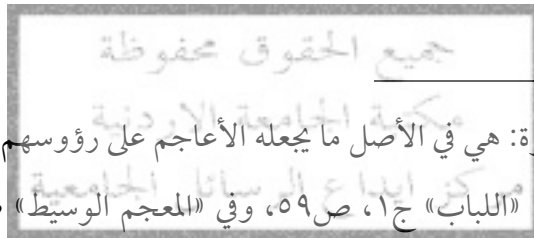 جميع الحقوق محفوظة
مكتبة الجامعة الاردنية
رة: هي في الأصل ما يجعله الأعاجم على رؤوسهم
مركز ايداع الرسائل الجامعية
«اللباب» ج١، ص٥٩، وفي «المعجم الوسيط»